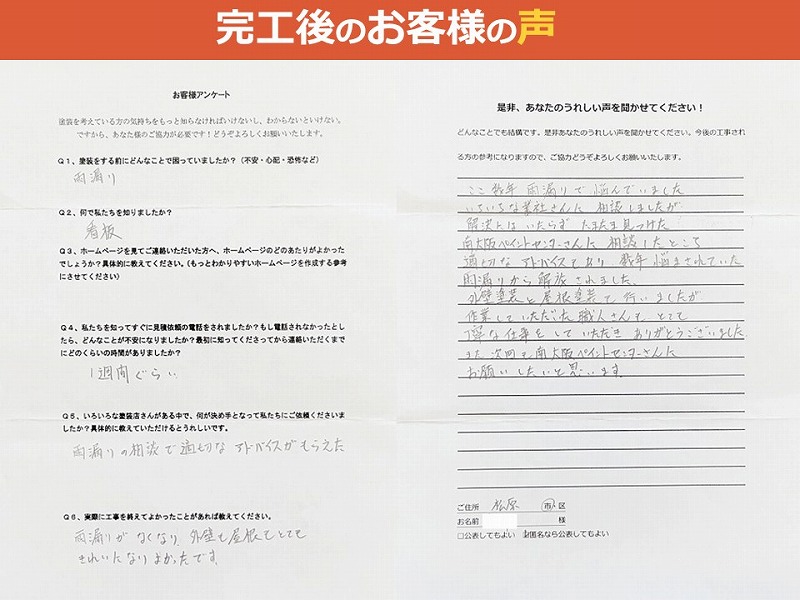 完工後のお客様の声
お客様アンケート
塗装を考えている方の気持ちをもっと知らなければいけないし、わからないといけない。
ですから、あなた様のご協力が必要です！どうぞよろしくお願いいたします。
Q１、塗装をする前にどんなことで困っていましたか？（不安・心配・恐怖など）
雨漏り
Q２、何で私たちを知りましたか？
看板
Q３、ホームページを見てご連絡いただいた方へ、ホームページのどのあたりがよかった
でしょうか？具体的に教えてください。（もっとわかりやすいホームページを作成する参考
にさせてください）
Q４、私たちを知ってすぐに見積依頼の電話をされましたか？もし電話されなかったとし
たら、どんなことが不安になりましたか？最初に知ってくださってから連絡いただくまで
にどのくらいの時間がありましたか？
1週間ぐらい
Q５、いろいろな塗装店さんがある中で、何が決め手となって私たちにご依頼くださいま
したか？具体的に教えていただけるとうれしいです。
雨漏りの相談で適切なアドバイスがもらえた
Q６、実際に工事を終えてよかったことがあれば教えてください。
雨漏りがなくなり、外壁も屋根もとても
きれいになりよかったです。
是非、あなたのうれしい声を聞かせてください！
どんなことでも結構です。是非あなたのうれしい声を聞かせてください。今後の工事され
る方の参考になりますので、ご協力どうぞよろしくお願いいたします。
ここ数年 雨漏りで悩んでいました
いろいろな業社さんに 相談しましたが
解決にはいたらず たまたま見つけた
南大阪ペイントセンターさんに 相談したところ
適切な アドバイスもあり 数年 悩まされていた
雨漏りから解放されました。
外壁塗装と屋根塗装で行いましたが
作業していただいた職人さんも とても
丁寧な仕事をしていただき ありがとうございました
また 次回も南大阪ペイントセンターさんに
お願いしたいと思います。
ご住所 松原 市・区
お名前 様
□公表してもよい 匿名なら公表してもよい